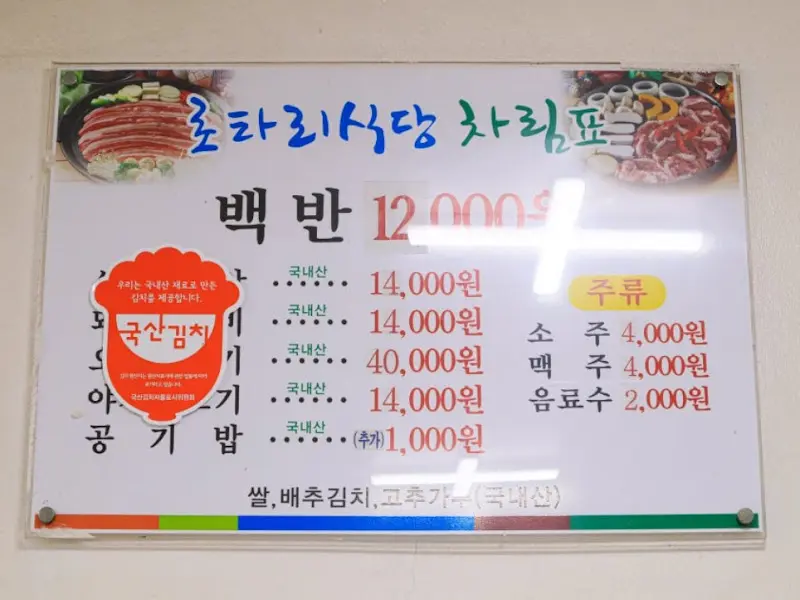 로타리식당 차림표
백 반 12,000원
국내산 14,000원
국내산 14,000원
국내산 40,000원
국내산 14,000원
공 기 밥 국내산 (추가) 1,000원
주류
소 주 4,000원
맥 주 4,000원
음료수 2,000원
쌀, 배추김치, 고추가루(국내산)
우리는 국내산 재료로 만든
김치를 제공합니다.
국산김치
국산김치자율표시위원회